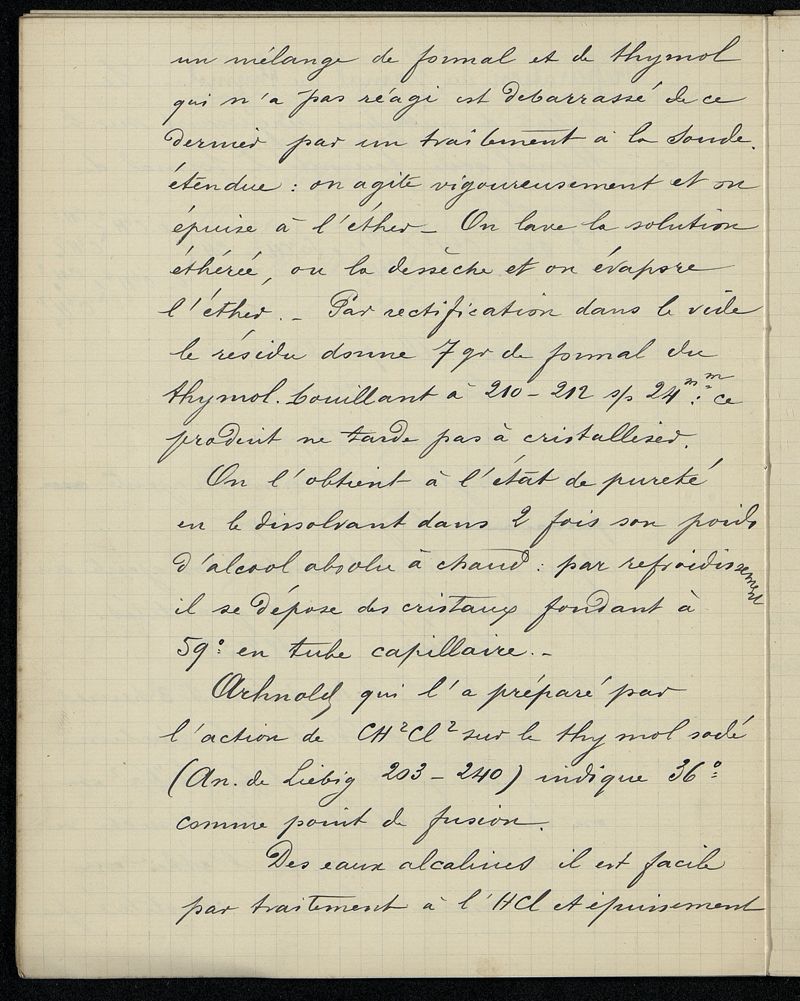 un mélange de formal et de thymol
qui n'a pas réagi est debarrassé de ce
dernier par un traitement à la soude
étendue : on agite vigoureusement et on
épuise à l'éther – On lave la solution
éthérée, on la dessèche et on évapore
l'éther. – Par rectification dans le vide
le résidu donne 7 gr de formal du
thymol. bouillant à 210 – 212 s/s 24 mm : ce
produit ne tarde pas à cristalliser.
On l'obtient à l'état de pureté
en le dissolvant dans 2 fois son poids
d'alcool absolu à chaud : par refroidissement
il se dépose des cristaux fondant à
59° en tube capillaire. –
Arhnold qui l'a préparé par
l'action de CH²Cl² sur le thymol sodé
(An. de Liebig 203 – 240) indique 36°
comme point de fusion.
Des eaux alcalines il est facile
par traitement à l'HCl et épuisement